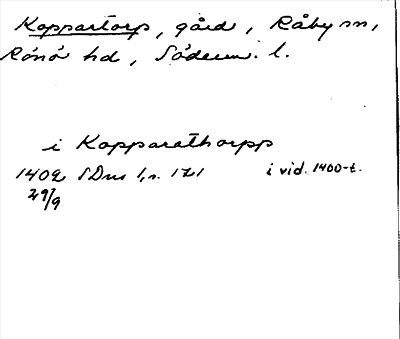 Koppartorp, gård, Råby sn,
Rönö hd, Söderm. l.
i Kopparathorpp
1402 SDns 1, n. 171 i vid. 1400-t.
29/9